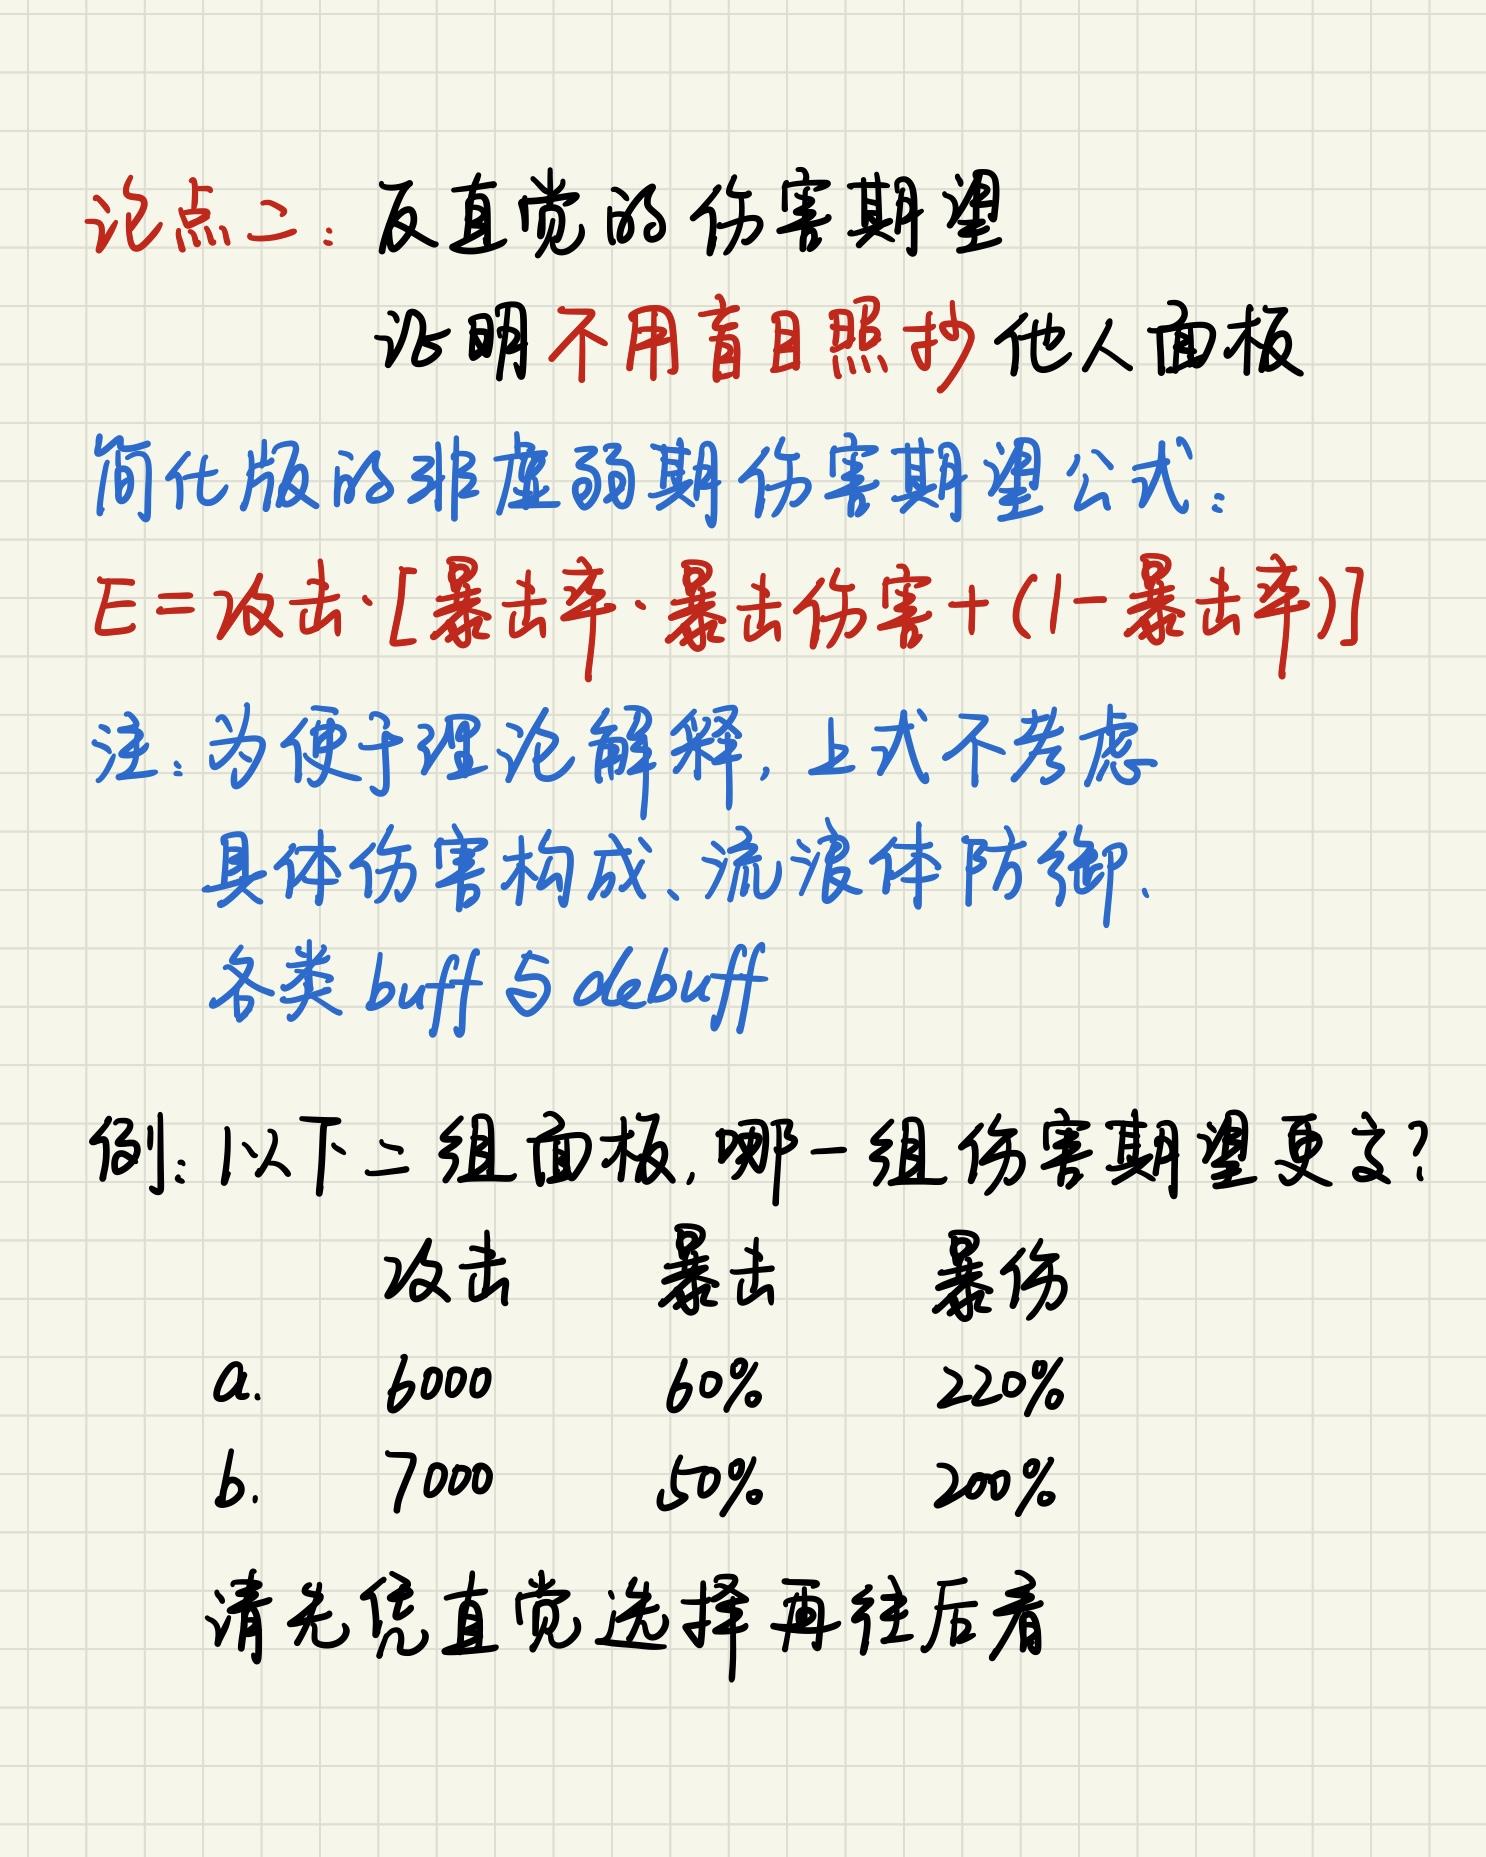 论点二：反直觉的伤害期望
证明不用盲目照抄他人面板
简化版的非虚弱期伤害期望公式：
E=攻击·[暴击率·暴击伤害+(1-暴击率)]
注：为便于理论解释，上式不考虑
具体伤害构成、流浪体防御、
各类buff与debuff
例：以下二组面板，哪一组伤害期望更高？
攻击 暴击 暴伤
a. 6000 60% 220%
b. 7000 50% 200%
请先凭直觉选择再往后看